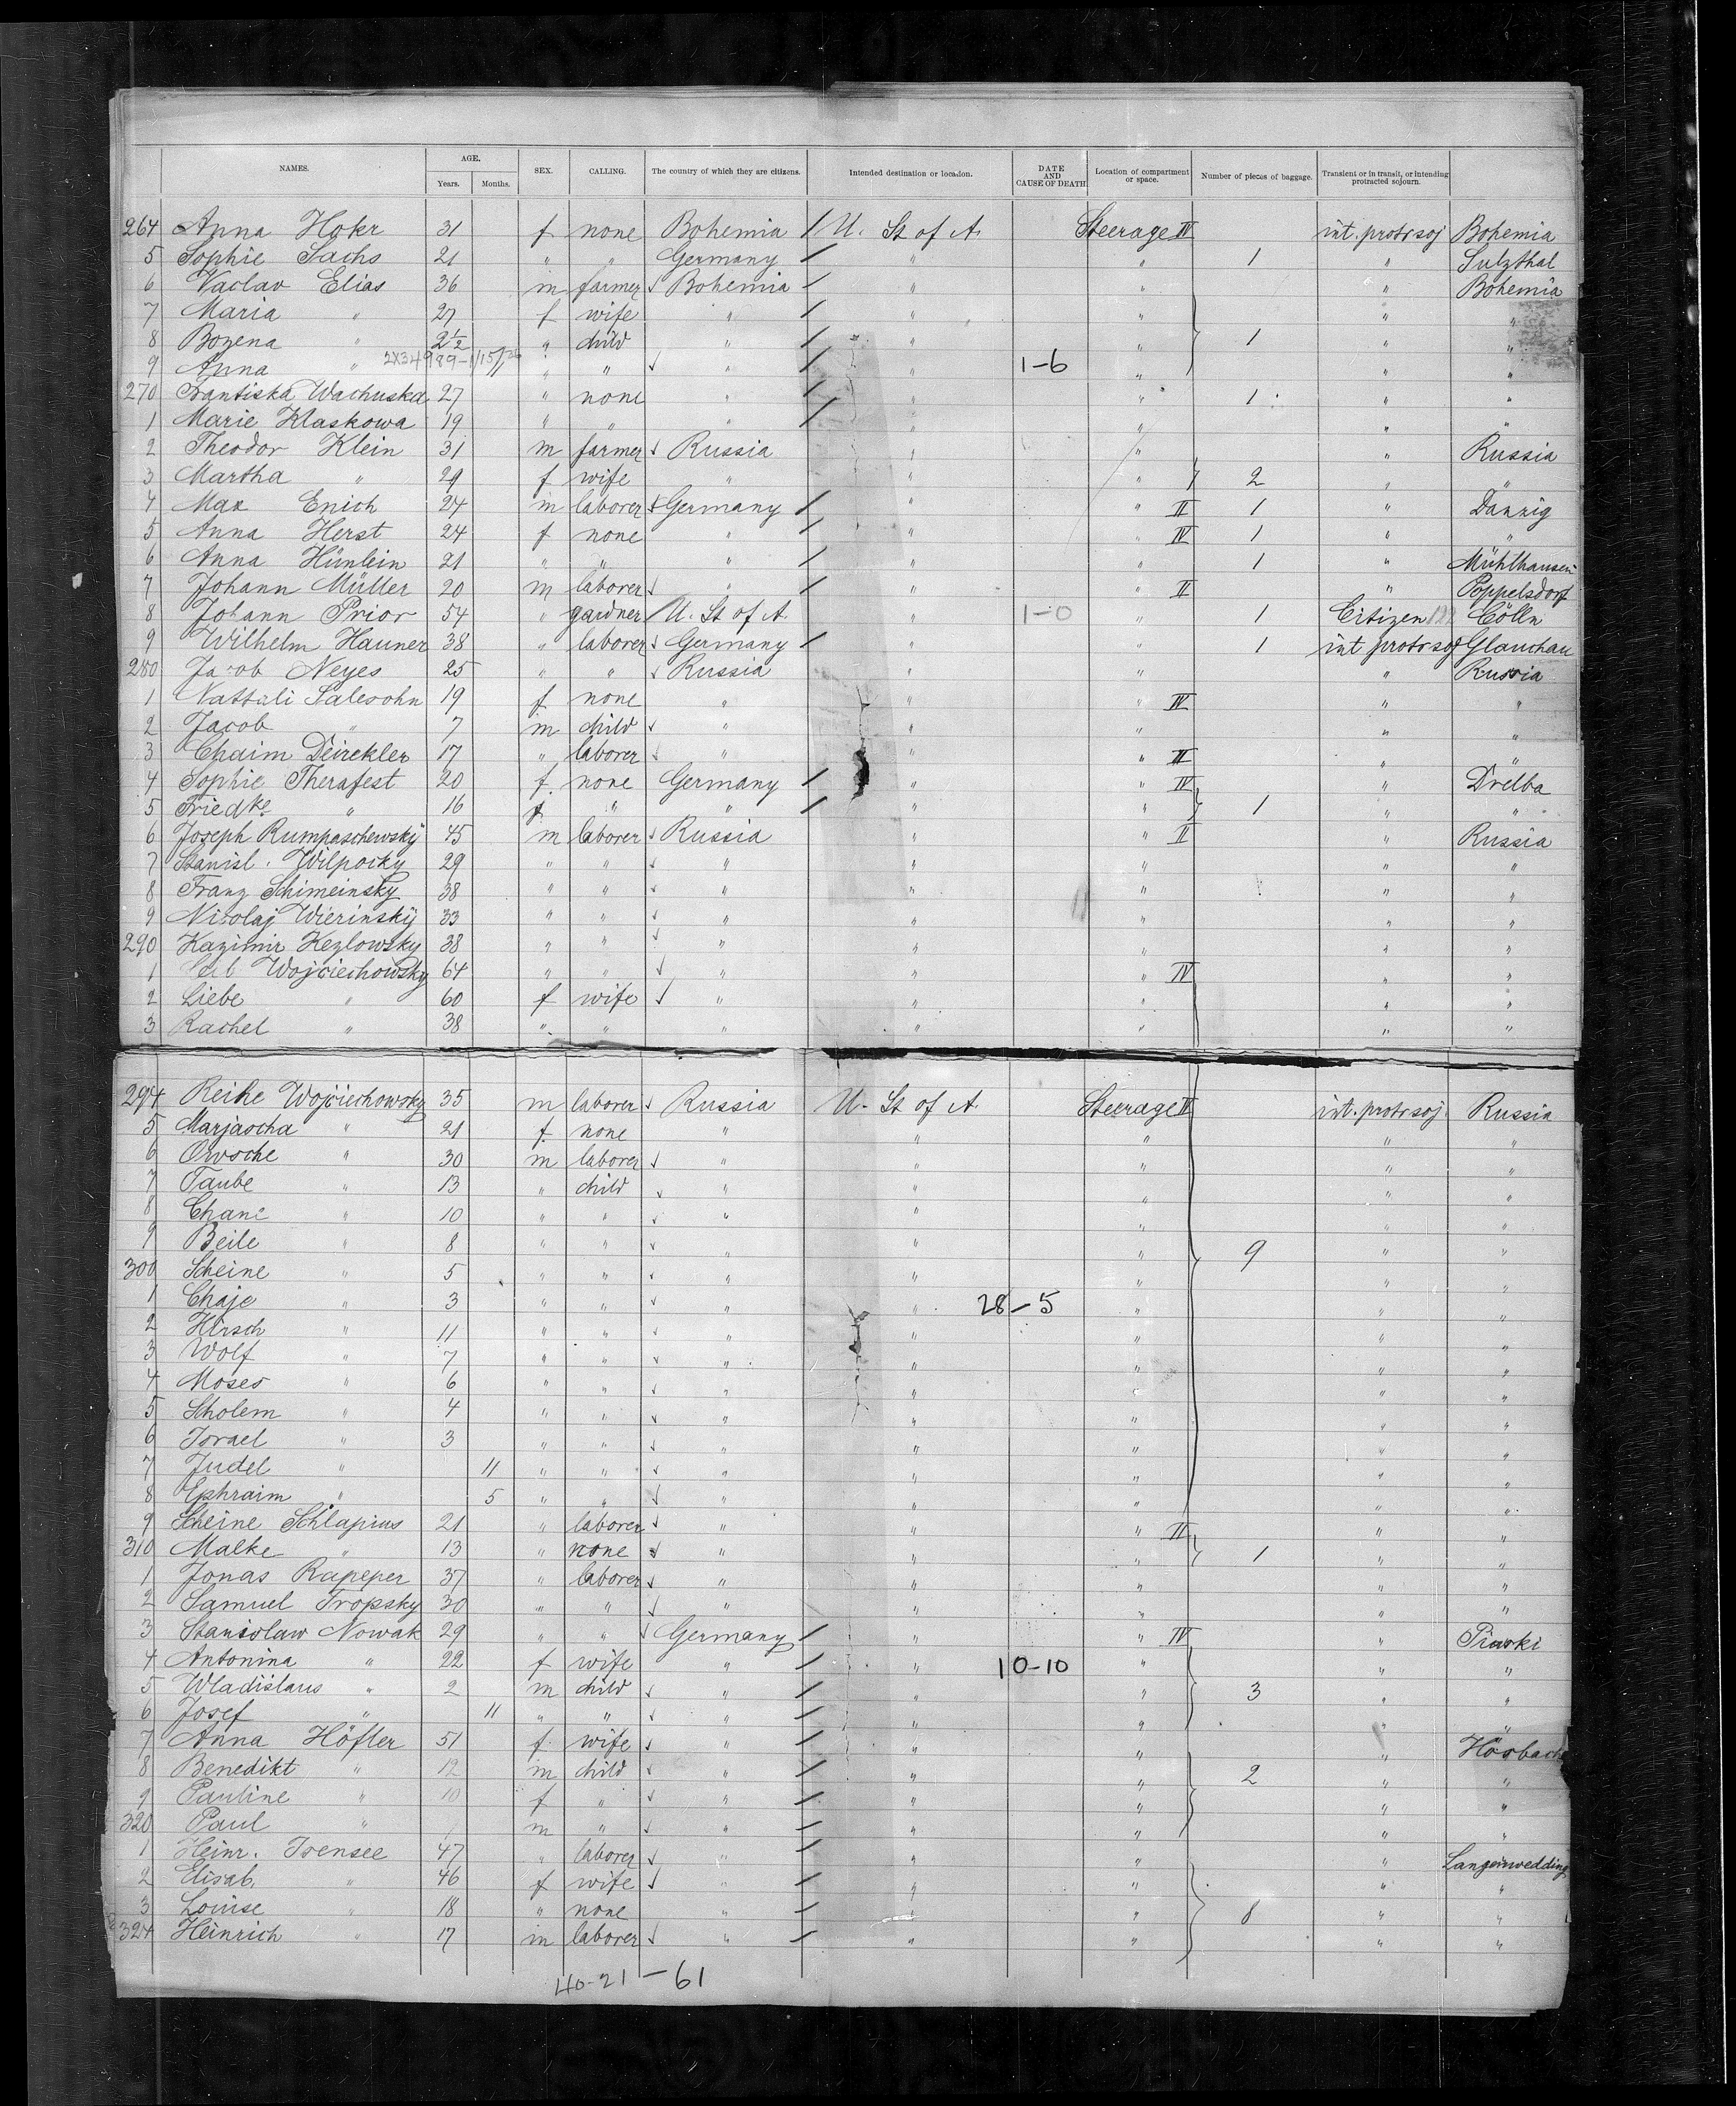 NAMES. AGE. Years. Months. SEX. CALLING. The country of which they are citizens. Intended destination or location. DATE AND CAUSE OF DEATH Location of compartment or space. Number of pieces of baggage. Transient or in transit, or intending protracted sojourn.
264 Anna Hokr 31 f none Bohemia / U. St of A. Steerage IV int. protr soj Bohemia
5 Sophie Sachs 21 " " Germany / " " 1 " Sulzthal
6 Vaclav Elias 36 m farmer ✓ Bohemia / " " " Bohemia
7 Maria " 27 f wife " / " " " "
8 Bozena " 2½ " child " / " " 1 " "
9 Anna " 2X34989-1/15/26 " " ✓ " / " 1-6 " " "
270 Frantiska Wachuska 27 " none " / " " 1 " "
1 Marie Klaskowa 19 " " " / " " " "
2 Theodor Klein 31 m farmer ✓ Russia " " " Russia
3 Martha " 29 f wife " " " 2 " "
4 Max Enich 24 m laborer ✓ Germany / " " II 1 " Danzig
5 Anna Herst 24 f none " / " " IV 1 " "
6 Anna Hünlein 21 " " " / " " 1 " Mühlhausen
7 Johann Müller 20 m laborer ✓ " / " " II " Poppelsdorf
8 Johann Prior 54 " gardner U. St of A. " 1-0 " 1 Citizen Cölln
9 Wilhelm Hauner 38 " laborer ✓ Germany / " " 1 int protr soj Glauchau
280 Jacob Neyes 25 " " ✓ Russia " " " Russia
1 Nattali Salesohn 19 f none " " " IV " "
2 Jacob " 7 m child ✓ " " " " "
3 Chaim Deirekler 17 " laborer ✓ " " " II " "
4 Sophie Therafest 20 f. none Germany / " " IV " Drelba
5 Friedke " 16 f " " / " " 1 " "
6 Joseph Rumpaschewsky 45 m laborer ✓ Russia " " II " Russia
7 Stanisl. Wilpocky 29 " " ✓ " " " " "
8 Franz Schimeinsky 38 " " ✓ " " " " "
9 Nicolaj Wierinsky 33 " " ✓ " " " " "
290 Kazimir Kezlowsky 38 " " ✓ " " " " "
1 Wojciechowsky 64 " " ✓ " " " IV " "
2 Liebe " 60 f wife ✓ " " " " "
3 Rachel " 38 " " " " " " "
294 Reihe Wojciechowsky 35 m laborer ✓ Russia U. St of A. Steerage IV int. protr soj. Russia
5 Marjascha " 21 f. none " " " " "
6 Owsche " 30 m laborer ✓ " " " " "
7 Taube " 13 " child ✓ " " " " "
8 Chane " 10 " " ✓ " " " " "
9 Beile " 8 " " ✓ " " " 9 " "
300 Scheine " 5 " " ✓ " " " " "
1 Chaje " 3 " " ✓ " " 28-5 " " "
2 Hirsch " 11 " " ✓ " " " " "
3 Wolf " 7 " " ✓ " " " " "
4 Moses " 6 " " ✓ " " " " "
5 Scholem " 4 " " ✓ " " " " "
6 Israel " 3 " " ✓ " " " " "
7 Judel " 11 " " ✓ " " " " "
8 Ephraim " 5 " " ✓ " " " " "
9 Scheine Schlapius 21 " laborer ✓ " " " II " "
310 Malke " 13 " none ✓ " " " 1 " "
1 Jonas Rapeper 37 " laborer ✓ " " " " "
2 Samuel Tropsky 30 " " ✓ " " " " "
3 Stanislaw Nowak 29 " " ✓ Germany / " " IV " Piaski
4 Antonina " 22 f wife " / " 10-10 " " "
5 Wladislaus " 2 m child ✓ " / " " 3 " "
6 Josef " 11 " " ✓ " / " " " "
7 Anna Höfler 51 f. wife ✓ " / " " " Hösbach
8 Benedikt " 12 m child ✓ " / " " 2 " "
9 Pauline " 10 f " ✓ " / " " " "
320 Paul " m " ✓ " / " " " "
1 Heinr. Isensee 47 " laborer ✓ " / " " " Langenwedding
2 Elisab. " 46 f wife ✓ " / " " " "
3 Louise " 18 " none " / " " 8 " "
324 Heinrich " 17 m laborer ✓ " / " " " "
40-21-61